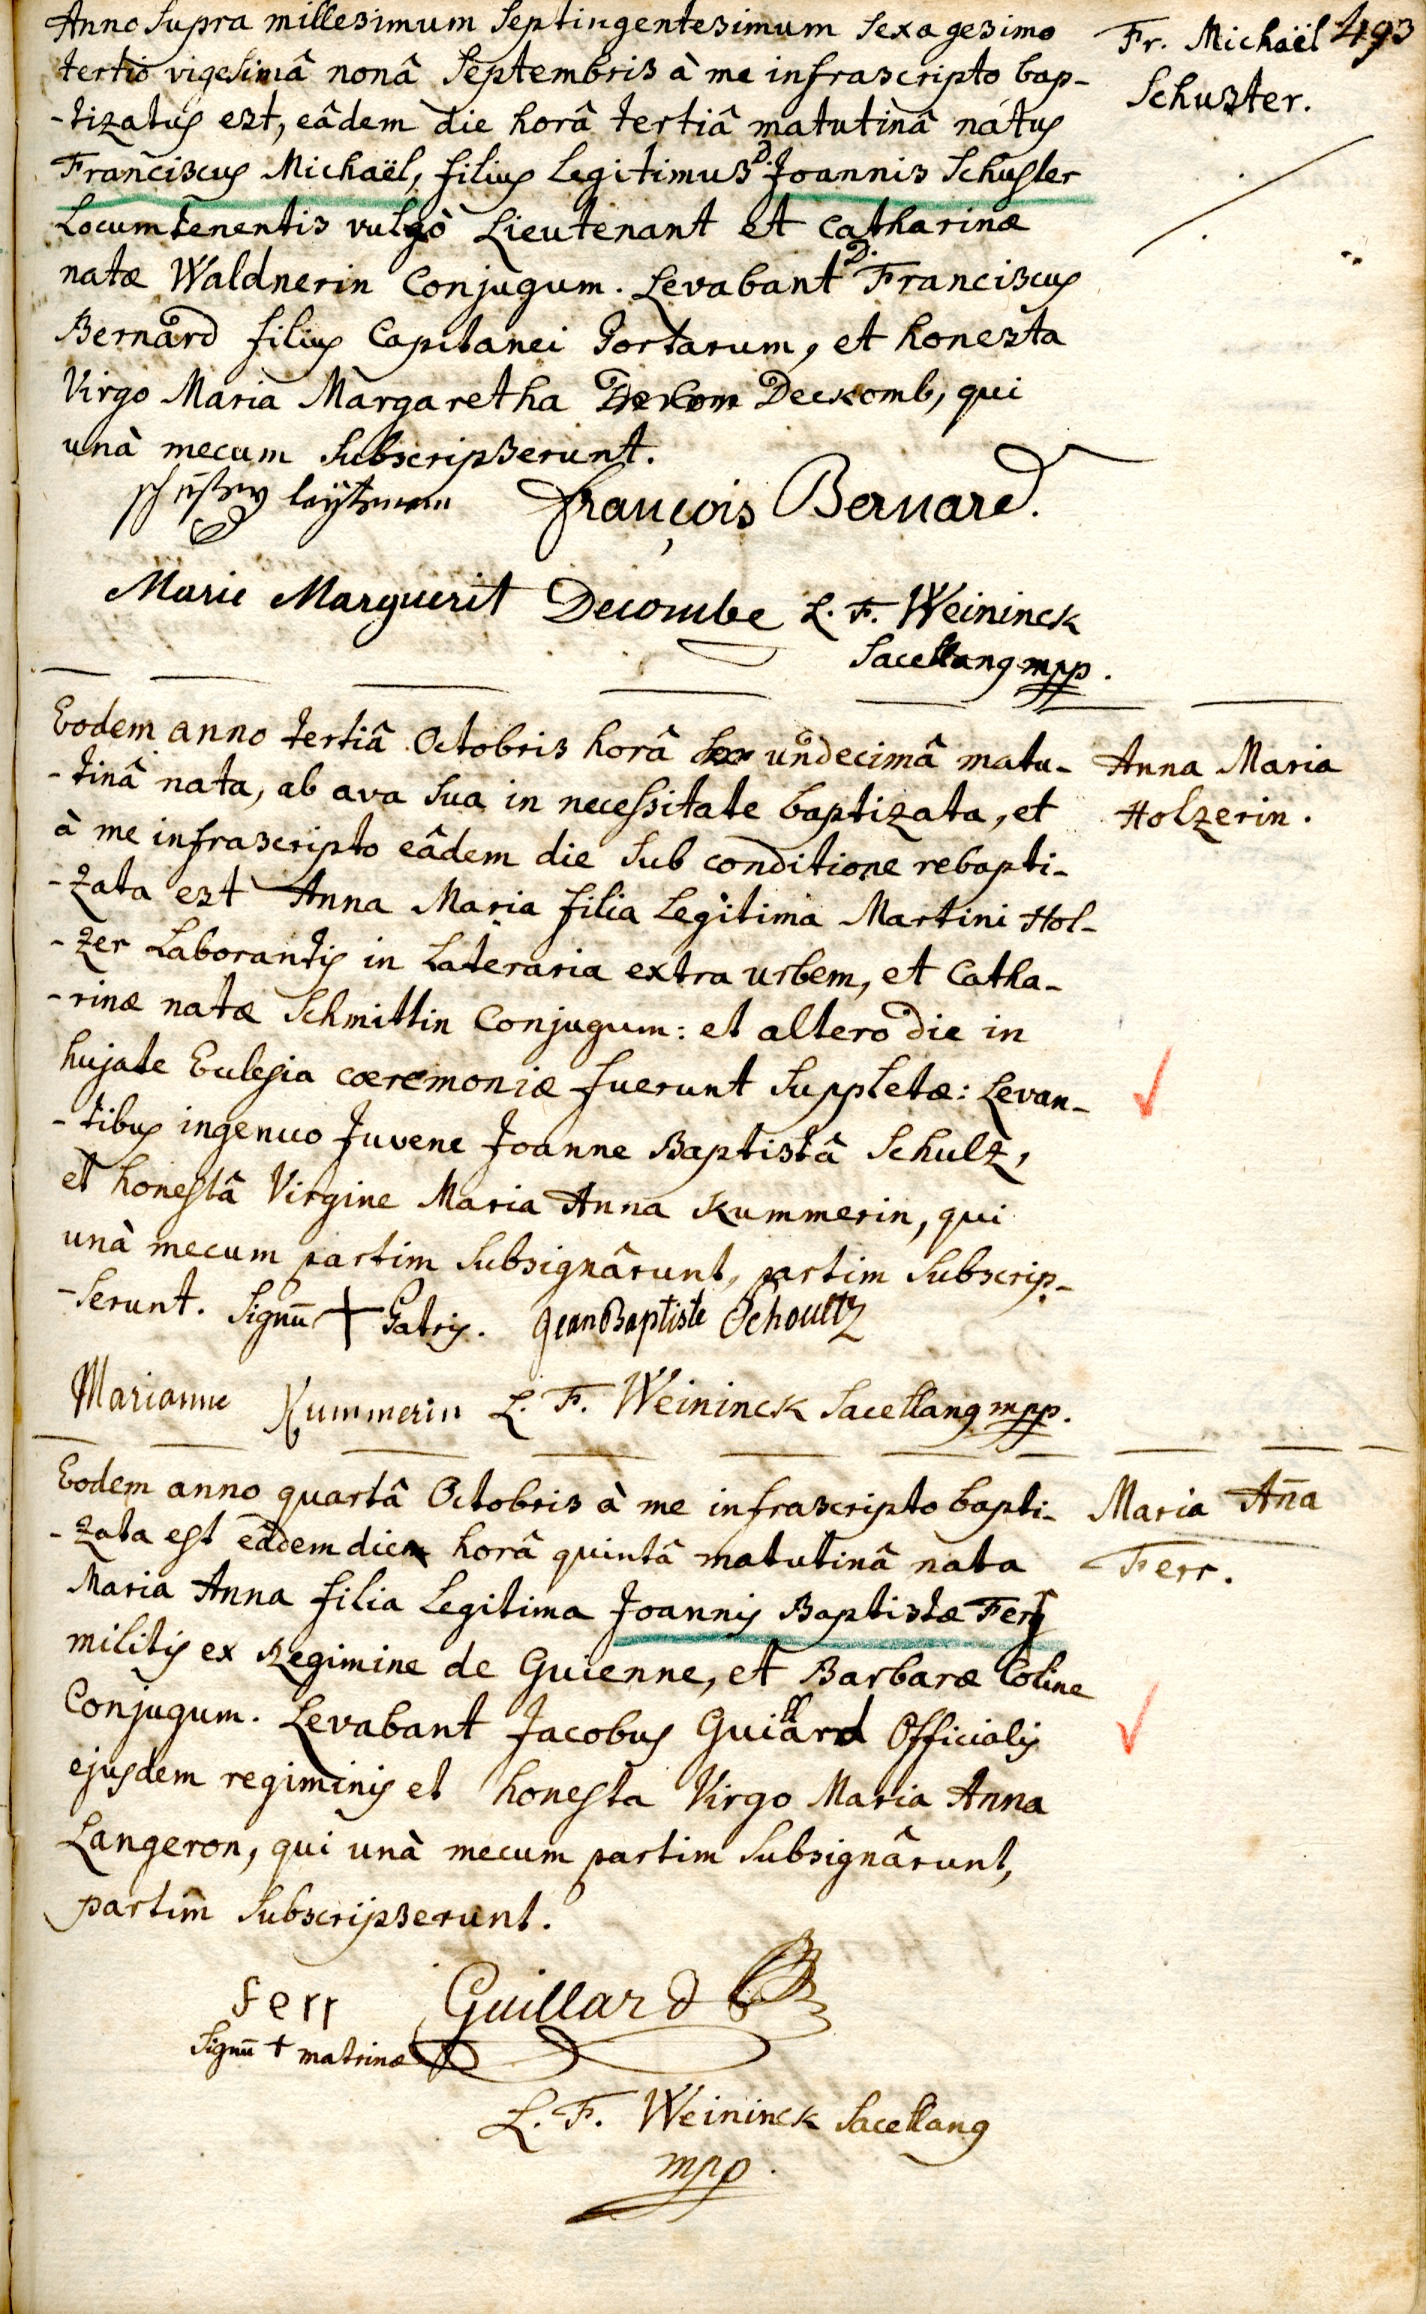 493
Anno supra millesimum septingentesimum sexagesimo
tertio vigesimâ nonâ Septembris à me infrascripto bap-
-tizatus est, eâdem die horâ tertiâ matutinâ natus
Franciscus Michaël, filius legitimus D. Joannis Schuster
Locumtenentis vulgò Lieutenant et Catharinæ
natæ Waldnerin Conjugum. Levabant D. Franciscus
Bernard filius Capitanei Portarum, et honesta
Virgo Maria Margaretha Deckomb, qui
unà mecum subscripserunt.
Fr. Michaël
Schuster.
François Bernard.
Marie Marguerit Decombe L. F. Weininck
Sacellanus mpp.
Eodem anno tertiâ Octobris horâ undecimâ matu-
-tinâ nata, ab ava sua in necessitate baptizata, et
à me infrascripto eâdem die sub conditione rebapti-
-zata est Anna Maria filia legitima Martini Hol-
-zer Laborantis in Lateraria extra urbem, et Catha-
-rinæ natæ Schmittin Conjugum: et altero die in
hujate Ecclesia cœremoniæ fuerunt suppletæ: Levan-
-tibus ingenuo Juvene Joanne Baptistâ Schulz,
et honestâ Virgine Maria Anna Kummerin, qui
unà mecum partim subsignârunt, partim subscrip-
-serunt. Signū + Patris. Jean Baptiste Schoultz
Anna Maria
Holzerin.
Marianne Kummerin L. F. Weininck Sacellanus mpp.
Eodem anno quartâ Octobris à me infrascripto bapti-
-zata est eâdem die horâ quintâ matutinâ nata
Maria Anna filia legitima Joannis Baptistæ Ferr
militis ex Regimine de Guienne, et Barbaræ Coline
Conjugum. Levabant Jacobus Guillard Officialis
ejusdem regiminis et honesta Virgo Maria Anna
Langeron, qui unà mecum partim subsignârunt,
partim subscripserunt.
Maria Aña
Ferr.
ferr Guillard
Signū + matrinæ
L. F. Weininck Sacellanus
mpp.